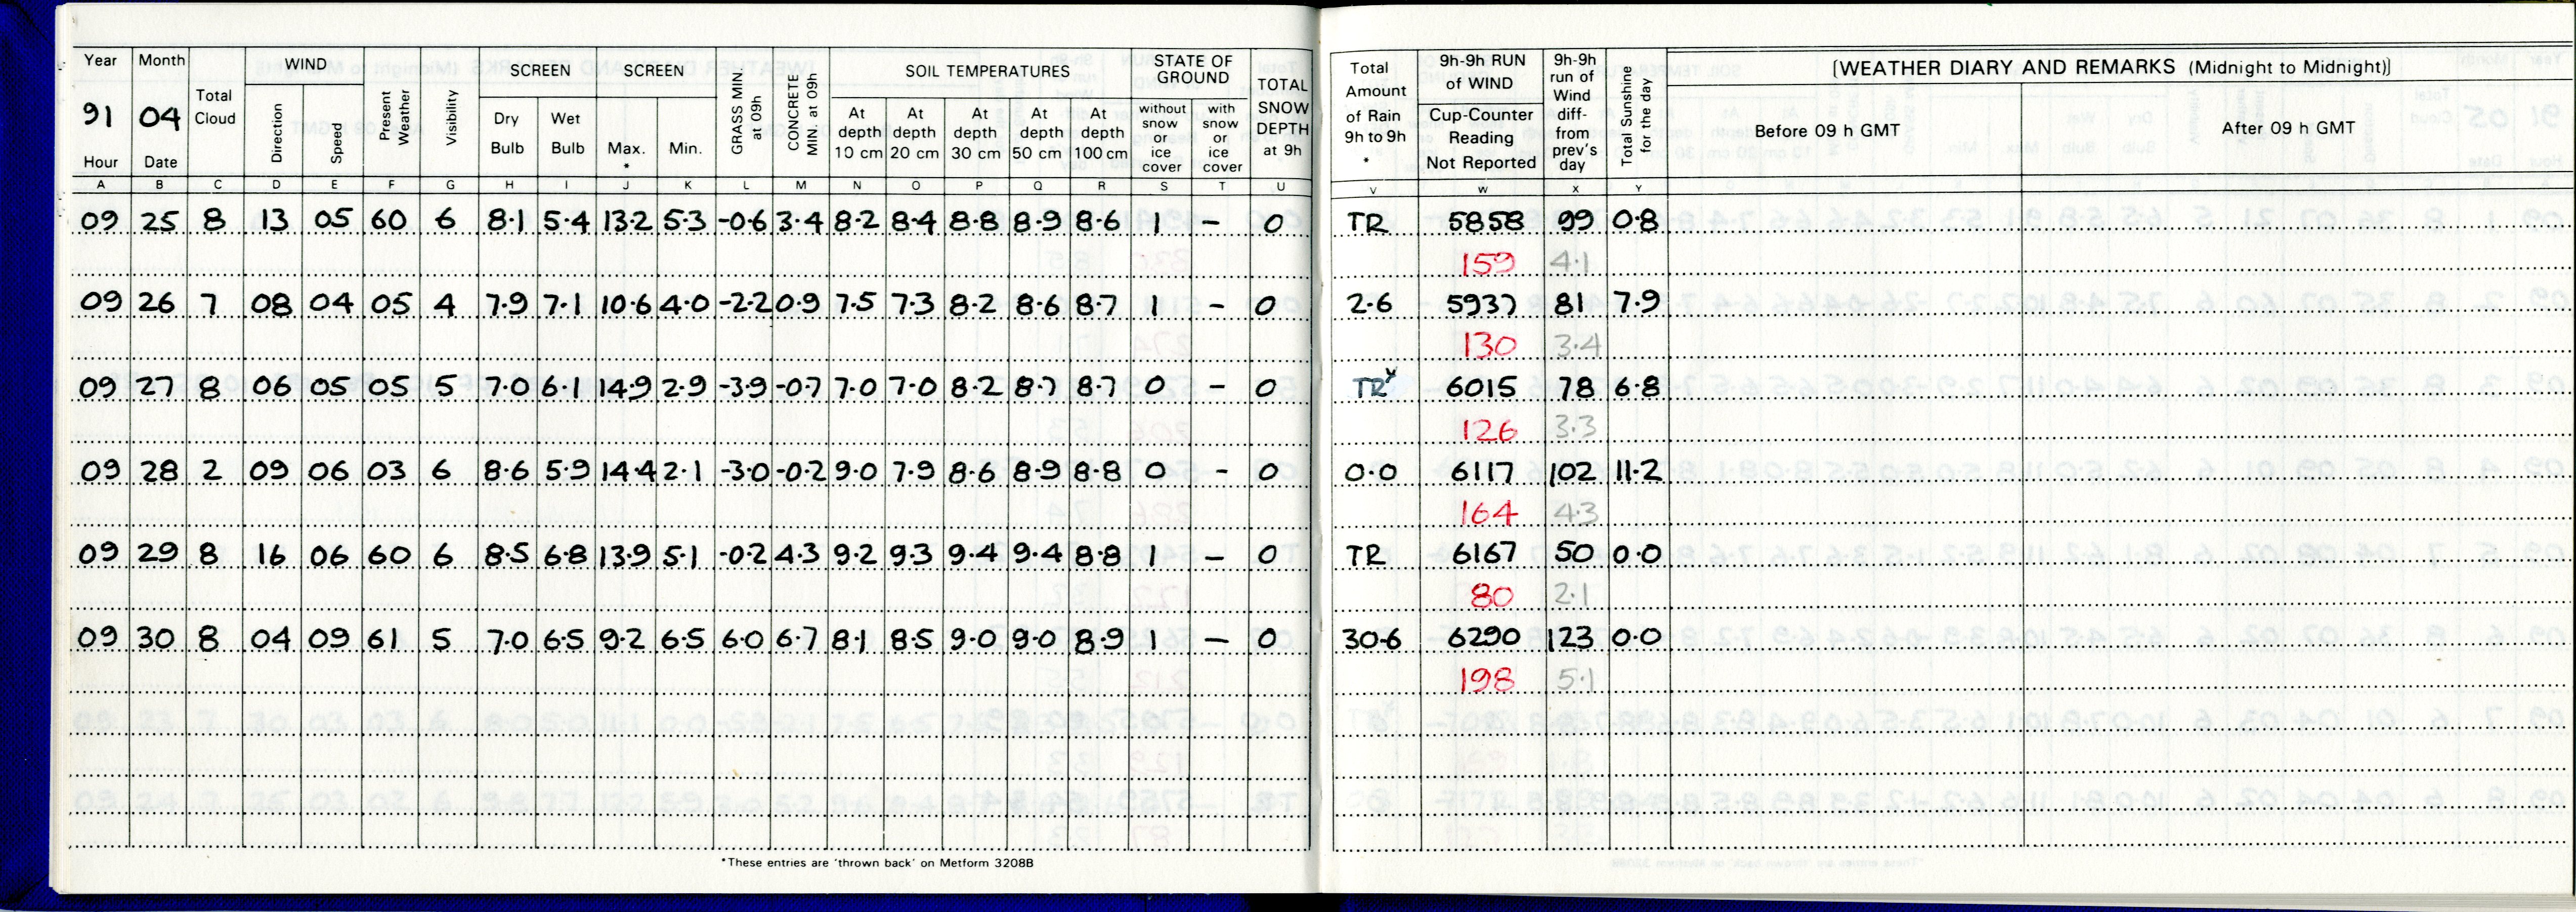 Year Month Total Cloud WIND Present Weather Visibility SCREEN SCREEN GRASS MIN. at 09h CONCRETE MIN. at 09h SOIL TEMPERATURES STATE OF GROUND TOTAL SNOW DEPTH at 9h
91 04 Direction Speed Dry Bulb Wet Bulb Max. * Min. At depth 10 cm At depth 20 cm At depth 30 cm At depth 50 cm At depth 100 cm without snow or ice cover with snow or ice cover
Hour Date
A B C D E F G H I J K L M N O P Q R S T U
09 25 8 13 05 60 6 8.1 5.4 13.2 5.3 -0.6 3.4 8.2 8.4 8.8 8.9 8.6 1 - 0
09 26 7 08 04 05 4 7.9 7.1 10.6 4.0 -2.2 0.9 7.5 7.3 8.2 8.6 8.7 1 - 0
09 27 8 06 05 05 5 7.0 6.1 14.9 2.9 -3.9 -0.7 7.0 7.0 8.2 8.7 8.7 0 - 0
09 28 2 09 06 03 6 8.6 5.9 14.4 2.1 -3.0 -0.2 9.0 7.9 8.6 8.9 8.8 0 - 0
09 29 8 16 06 60 6 8.5 6.8 13.9 5.1 -0.2 4.3 9.2 9.3 9.4 9.4 8.8 1 - 0
09 30 8 04 09 61 5 7.0 6.5 9.2 6.5 6.0 6.7 8.1 8.5 9.0 9.0 8.9 1 - 0
*These entries are 'thrown back' on Metform 3208B
Total Amount of Rain 9h to 9h * 9h-9h RUN of WIND Cup-Counter Reading Not Reported 9h-9h run of Wind diff- from prev's day Total Sunshine for the day [WEATHER DIARY AND REMARKS (Midnight to Midnight)]
Before 09 h GMT After 09 h GMT
V W X Y
TR 5858 99 0.8
159 4.1
2.6 5937 81 7.9
130 3.4
TR 6015 78 6.8
126 3.3
0.0 6117 102 11.2
164 4.3
TR 6167 50 0.0
80 2.1
30.6 6290 123 0.0
198 5.1